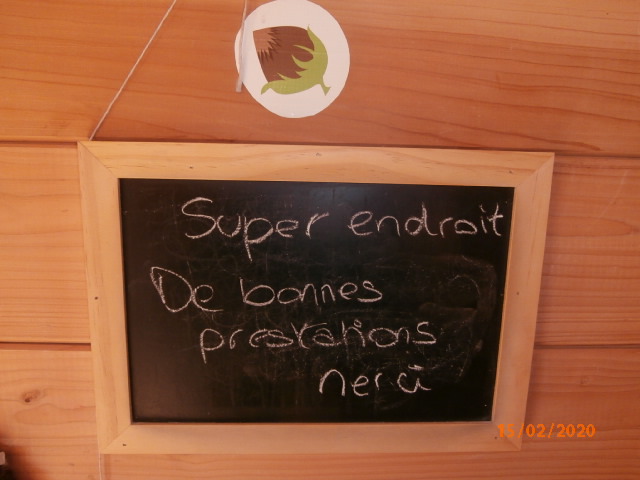 Super endroit
De bonnes
prestations
merci
15/02/2020